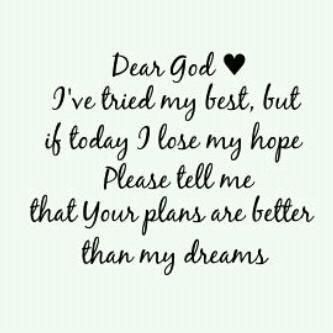 Dear God ♥
I've tried my best, but
if today I lose my hope
Please tell me
that Your plans are better
than my dreams